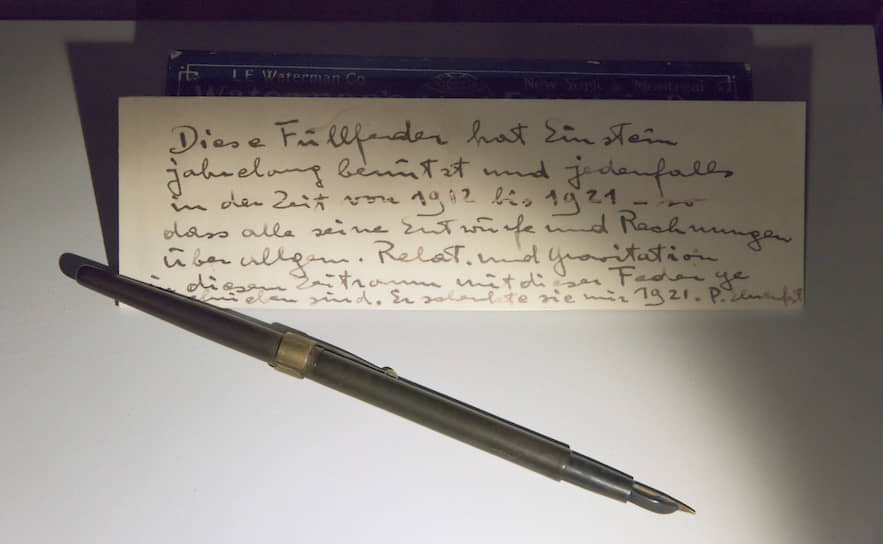 L.E. Waterman Co. New York & Montreal
Waterman's
Diese Füllfeder hat Einstein
jahrelang benützt und jedenfalls
in der Zeit von 1912 bis 1921 – so
dass alle seine Entwürfe und Rechnungen
über allgem. Relat. und Gravitation
in diesem Zeitraum mit dieser Feder ge
schrieben sind. Er schenkte sie mir 1921. P. Ehrenfest